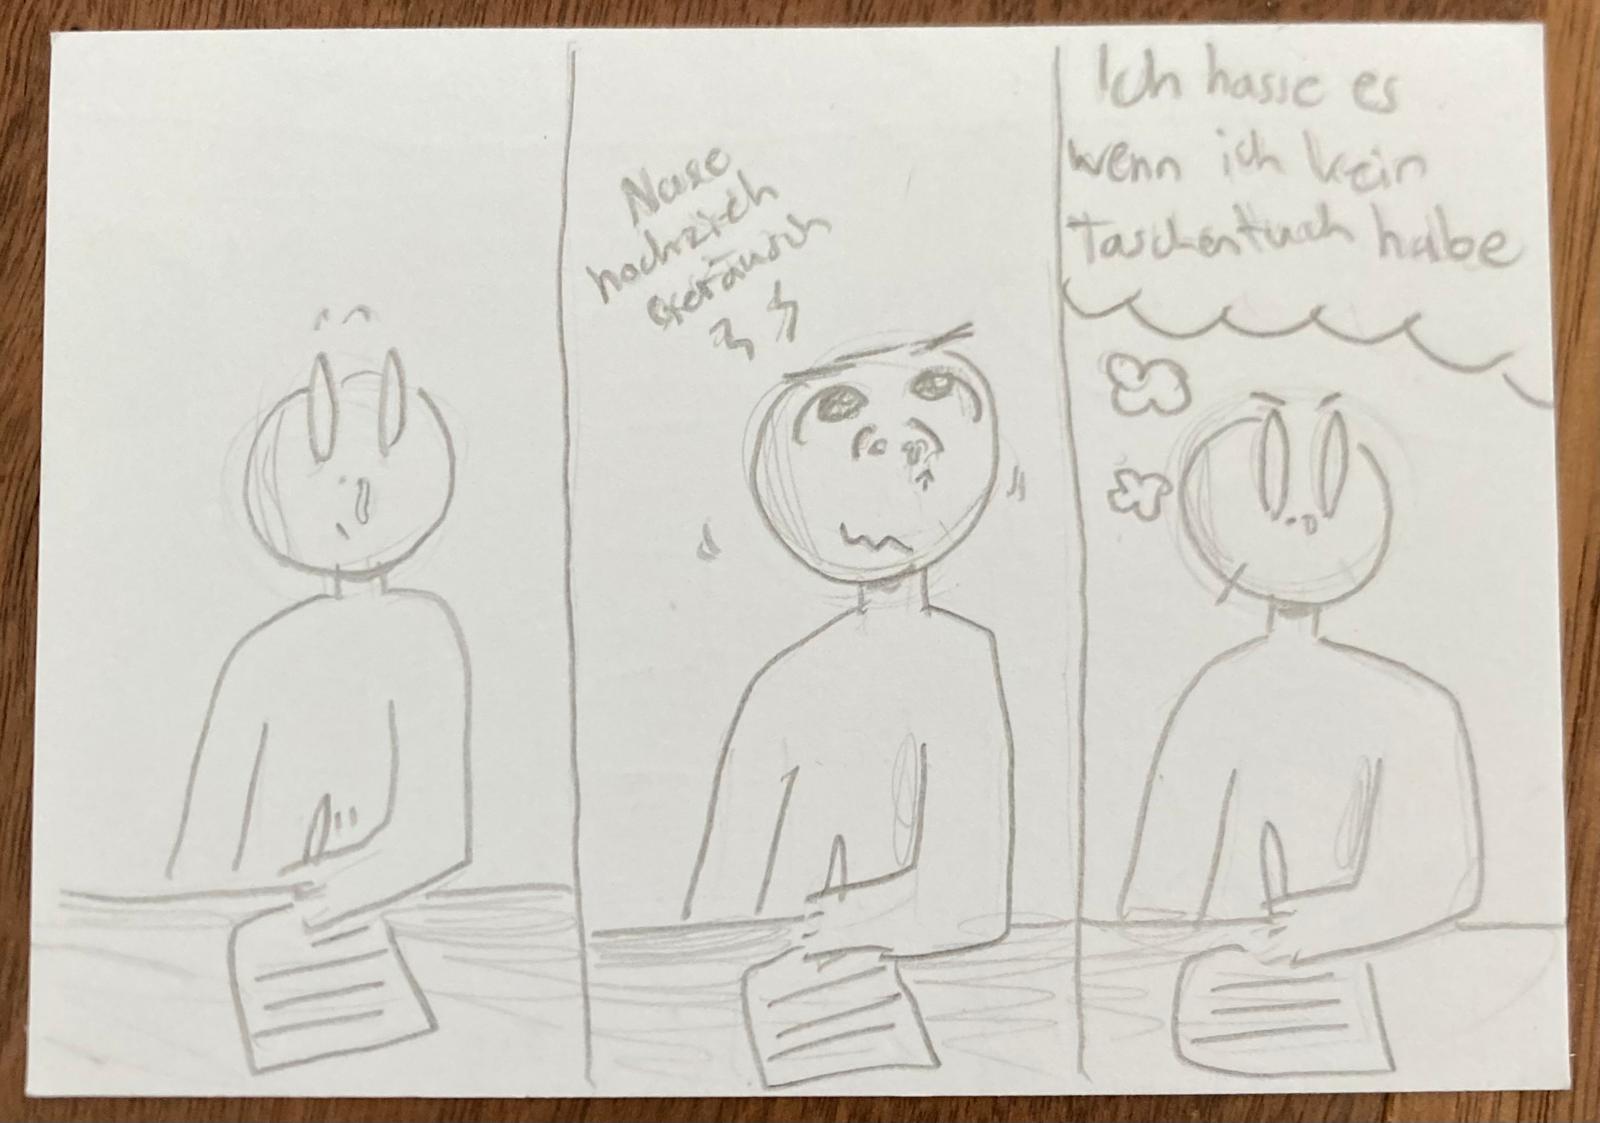 Nase
hochzieh
geräusch
Ich hasse es
wenn ich kein
Taschentuch habe